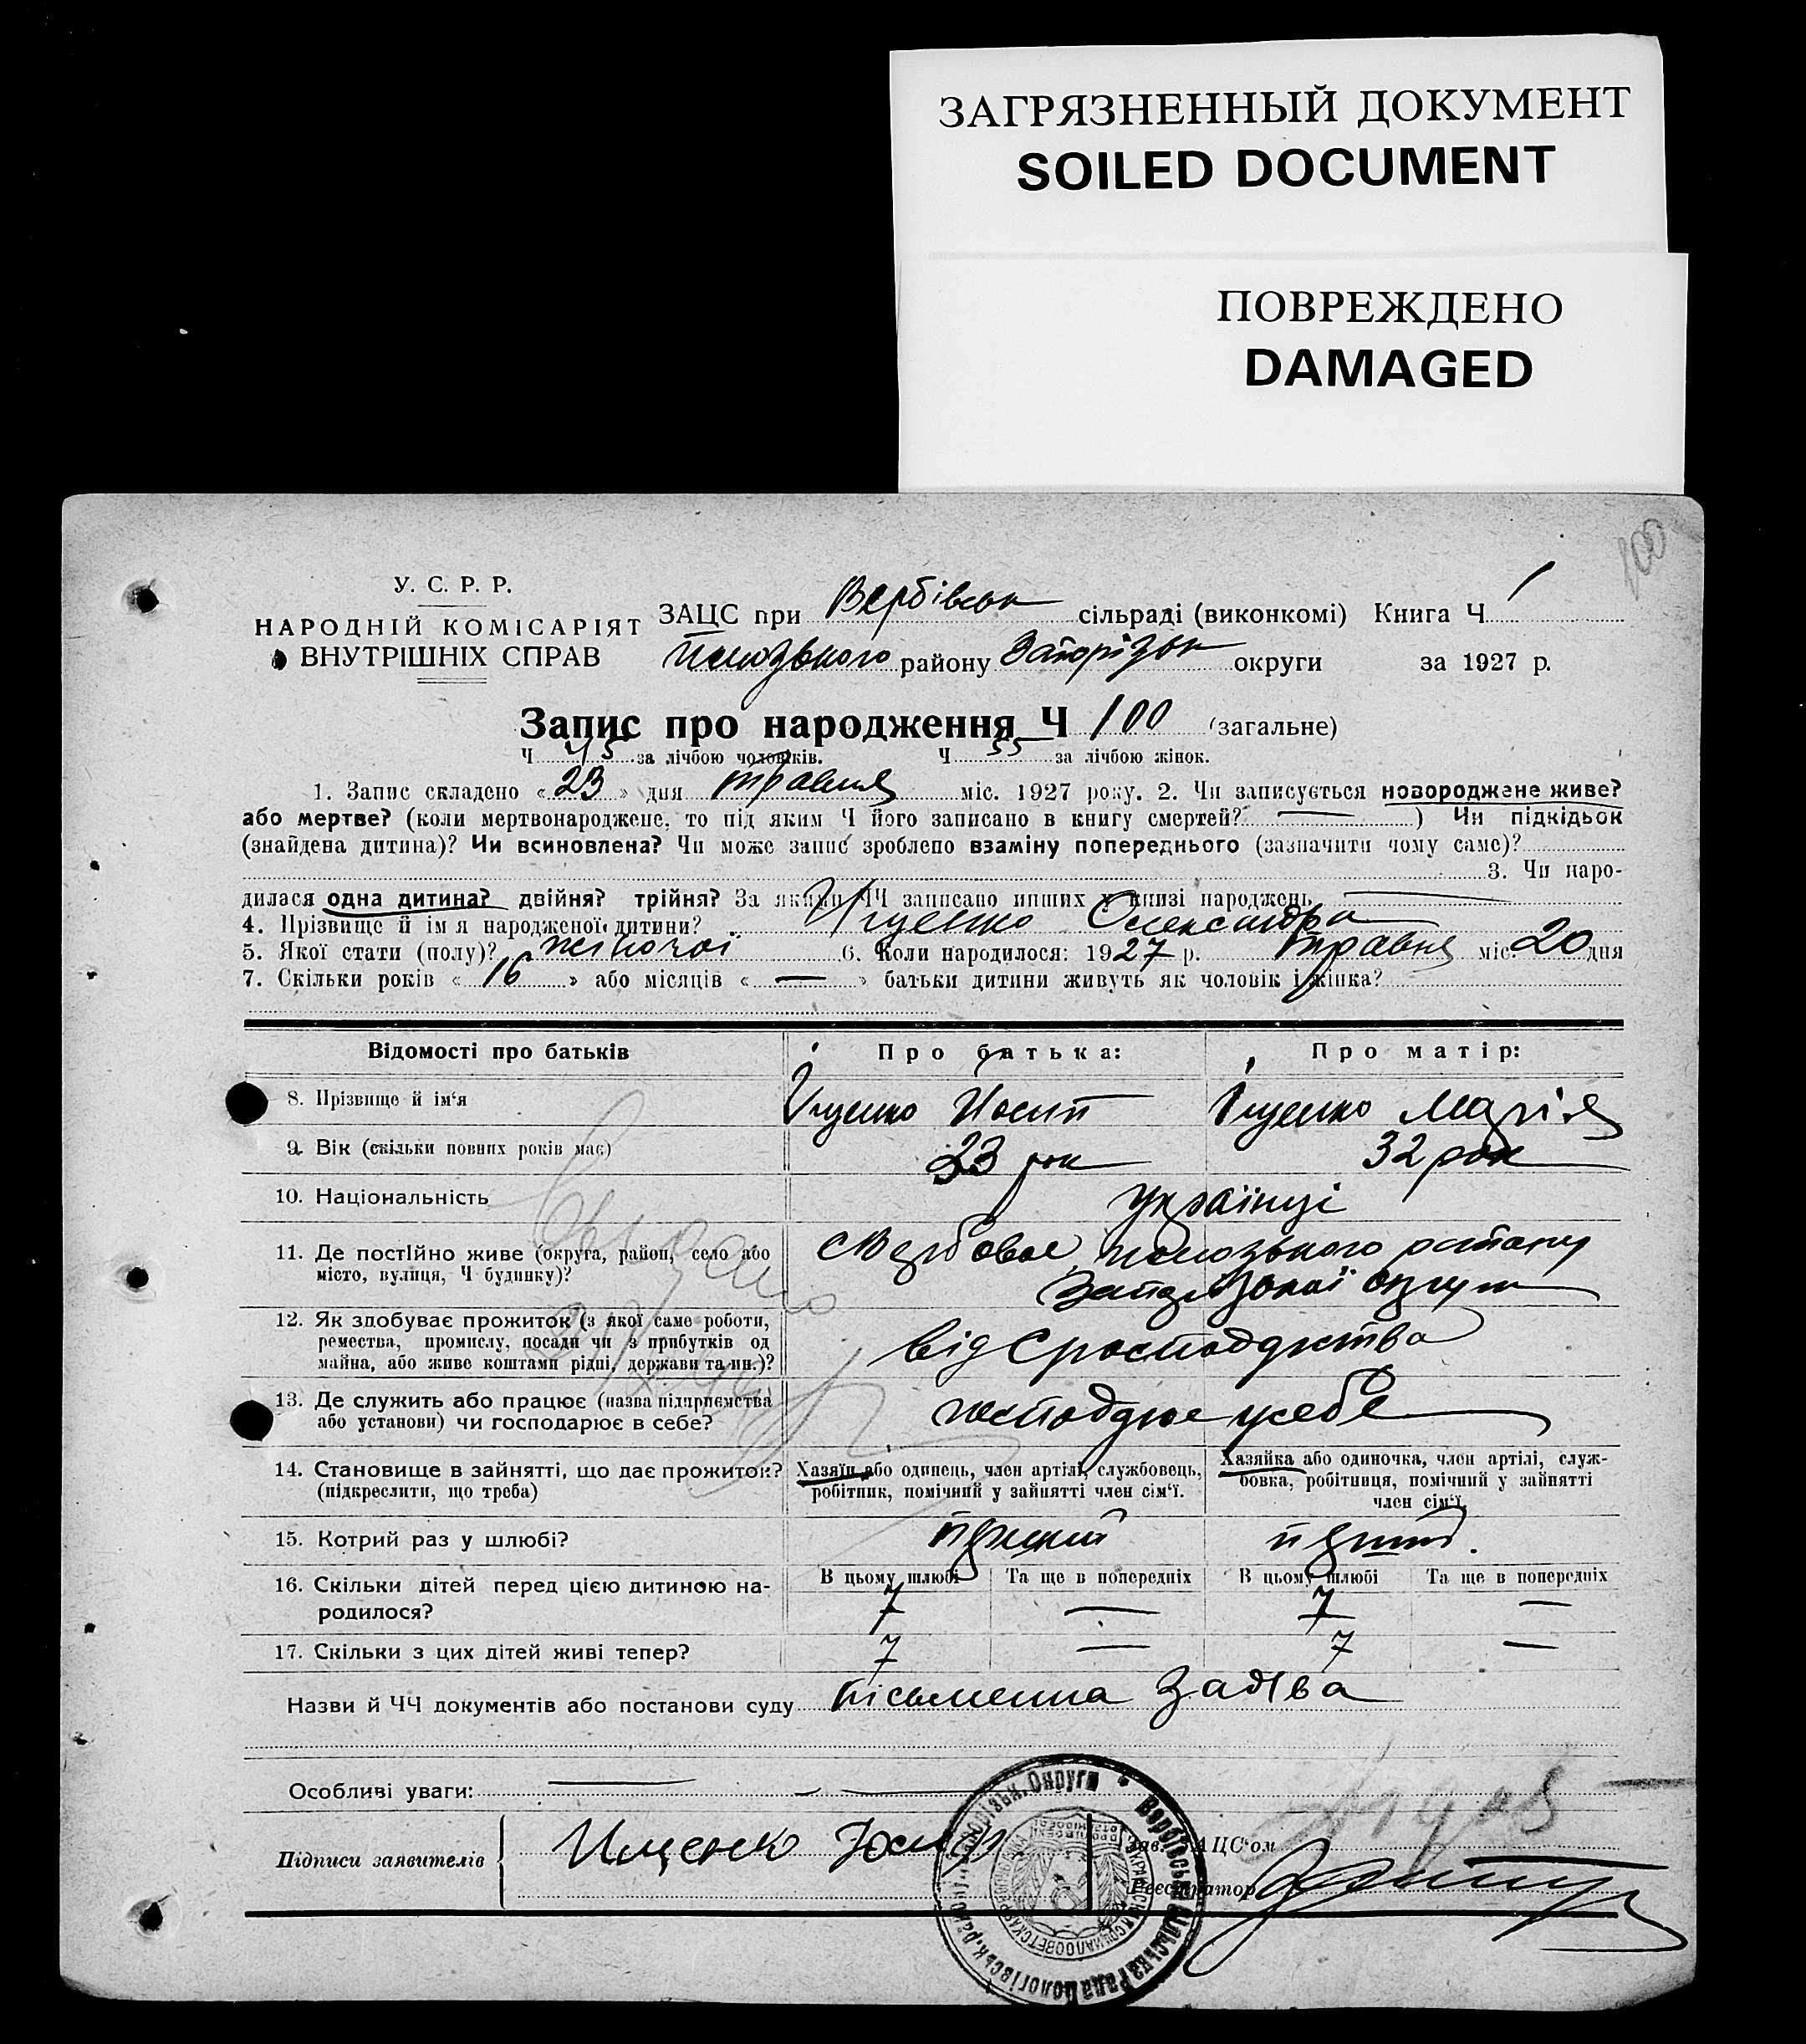 ЗАГРЯЗНЕННЫЙ ДОКУМЕНТ
SOILED DOCUMENT
ПОВРЕЖДЕНО
DAMAGED
100
У. С. Р. Р.
НАРОДНІЙ КОМІСАРІЯТ
ВНУТРІШНІХ СПРАВ
ЗАЦС при Вербівськ сільраді (виконкомі) Книга Ч 1
району Запорізьк округи за 1927 р.
Запис про народження Ч 100 (загальне)
Ч 45 за лічбою чоловіків. Ч 55 за лічбою жінок.
1. Запис складено « 23 » дня травня міс. 1927 року. 2. Чи записується новороджене живе?
або мертве? (коли мертвонароджене, то під яким Ч його записано в книгу смертей? — ) Чи підкідьок
(знайдена дитина)? Чи всиновлена? Чи може запис зроблено взаміну попереднього (зазначити чому саме)?
3. Чи наро-
дилася одна дитина? двійня? трійня? За якими ЧЧ записано инших у книзі народжень —
4. Прізвище й ім'я народженої дитини? Ищенко Олександра
5. Якої стати (полу)? жіночої 6. Коли народилося: 1927 р. травня міс. 20 дня
7. Скільки років « 16 » або місяців « — » батьки дитини живуть як чоловік і жінка?
Відомості про батьків Про батька: Про матір:
8. Прізвище й ім'я Іщенко Йосип Іщенко Марія
9. Вік (скільки повних років має) 33 рок 32 рок
10. Національність українці
11. Де постійно живе (округа, район, село або
місто, вулиця, Ч будинку)?
с Вербовое району
округи
12. Як здобуває прожиток (з якої саме роботи,
ремества, промислу, посади чи з прибутків од
майна, або живе коштами рідні, держави та ин.)?
від
13. Де служить або працює (назва підприємства
або установи) чи господарює в себе?
господарює у себе
14. Становище в зайнятті, що дає прожиток?
(підкреслити, що треба)
Хазяїн або одинець, член артілі, службовець,
робітник, помічний у зайнятті член сім'ї.
Хазяйка або одиночка, член артілі, служ-
бовка, робітниця, помічний у зайнятті
член сім'ї.
15. Котрий раз у шлюбі? перший перший.
16. Скільки дітей перед цією дитиною на-
родилося?
В цьому шлюбі Та ще в попередніх В цьому шлюбі Та ще в попередніх
7 — 7 —
17. Скільки з цих дітей живі тепер? 7 — 7 —
Назви й ЧЧ документів або постанови суду письменна заява
Особливі уваги: —
Підписи заявителів Ищенко
Зав. ЗАЦС'ом
Реєстратор
Вербівська Сільська Рада Пологівськ. району, Запорізьк. Округи